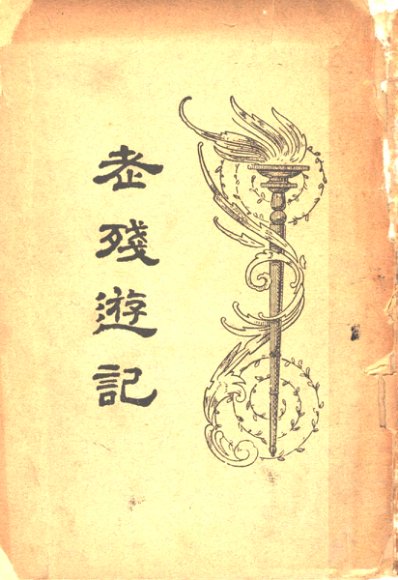 老殘遊記